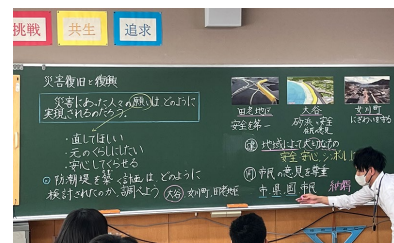 挑戦
共生
追求
災害復旧と復興
災害にあった人々の願いはどのように
実現されるのだろう。
・直してほしい
・元のくらしにしたい
・安心してくらせる
◎防潮堤を築く計画は、どのように
検討されたのか、調べよう
大谷 女川町 田老地区
田老地区
安全を第一
大谷
砂浜 安全
住民の意見
女川町
にぎわいを守る
地域によって大切なもの
安全 安心 シンボル
市民の意見を尊重
市 県 国 市民